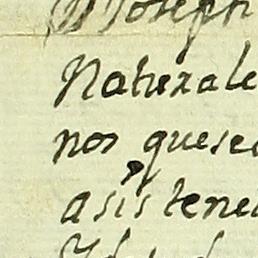 Joseph
Naturale
nos quese
asistene